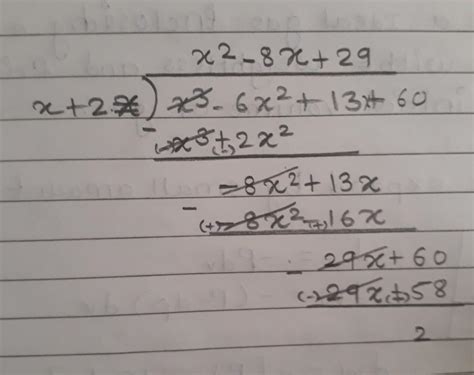 x² - 8x + 29
x + 2 x³ - 6x² + 13x + 60
- (-) x³ + (-) 2x²
-8x² + 13x
- (+) -8x² - (+) 16x
- 29x + 60
(-) 29x + (-) 58
2